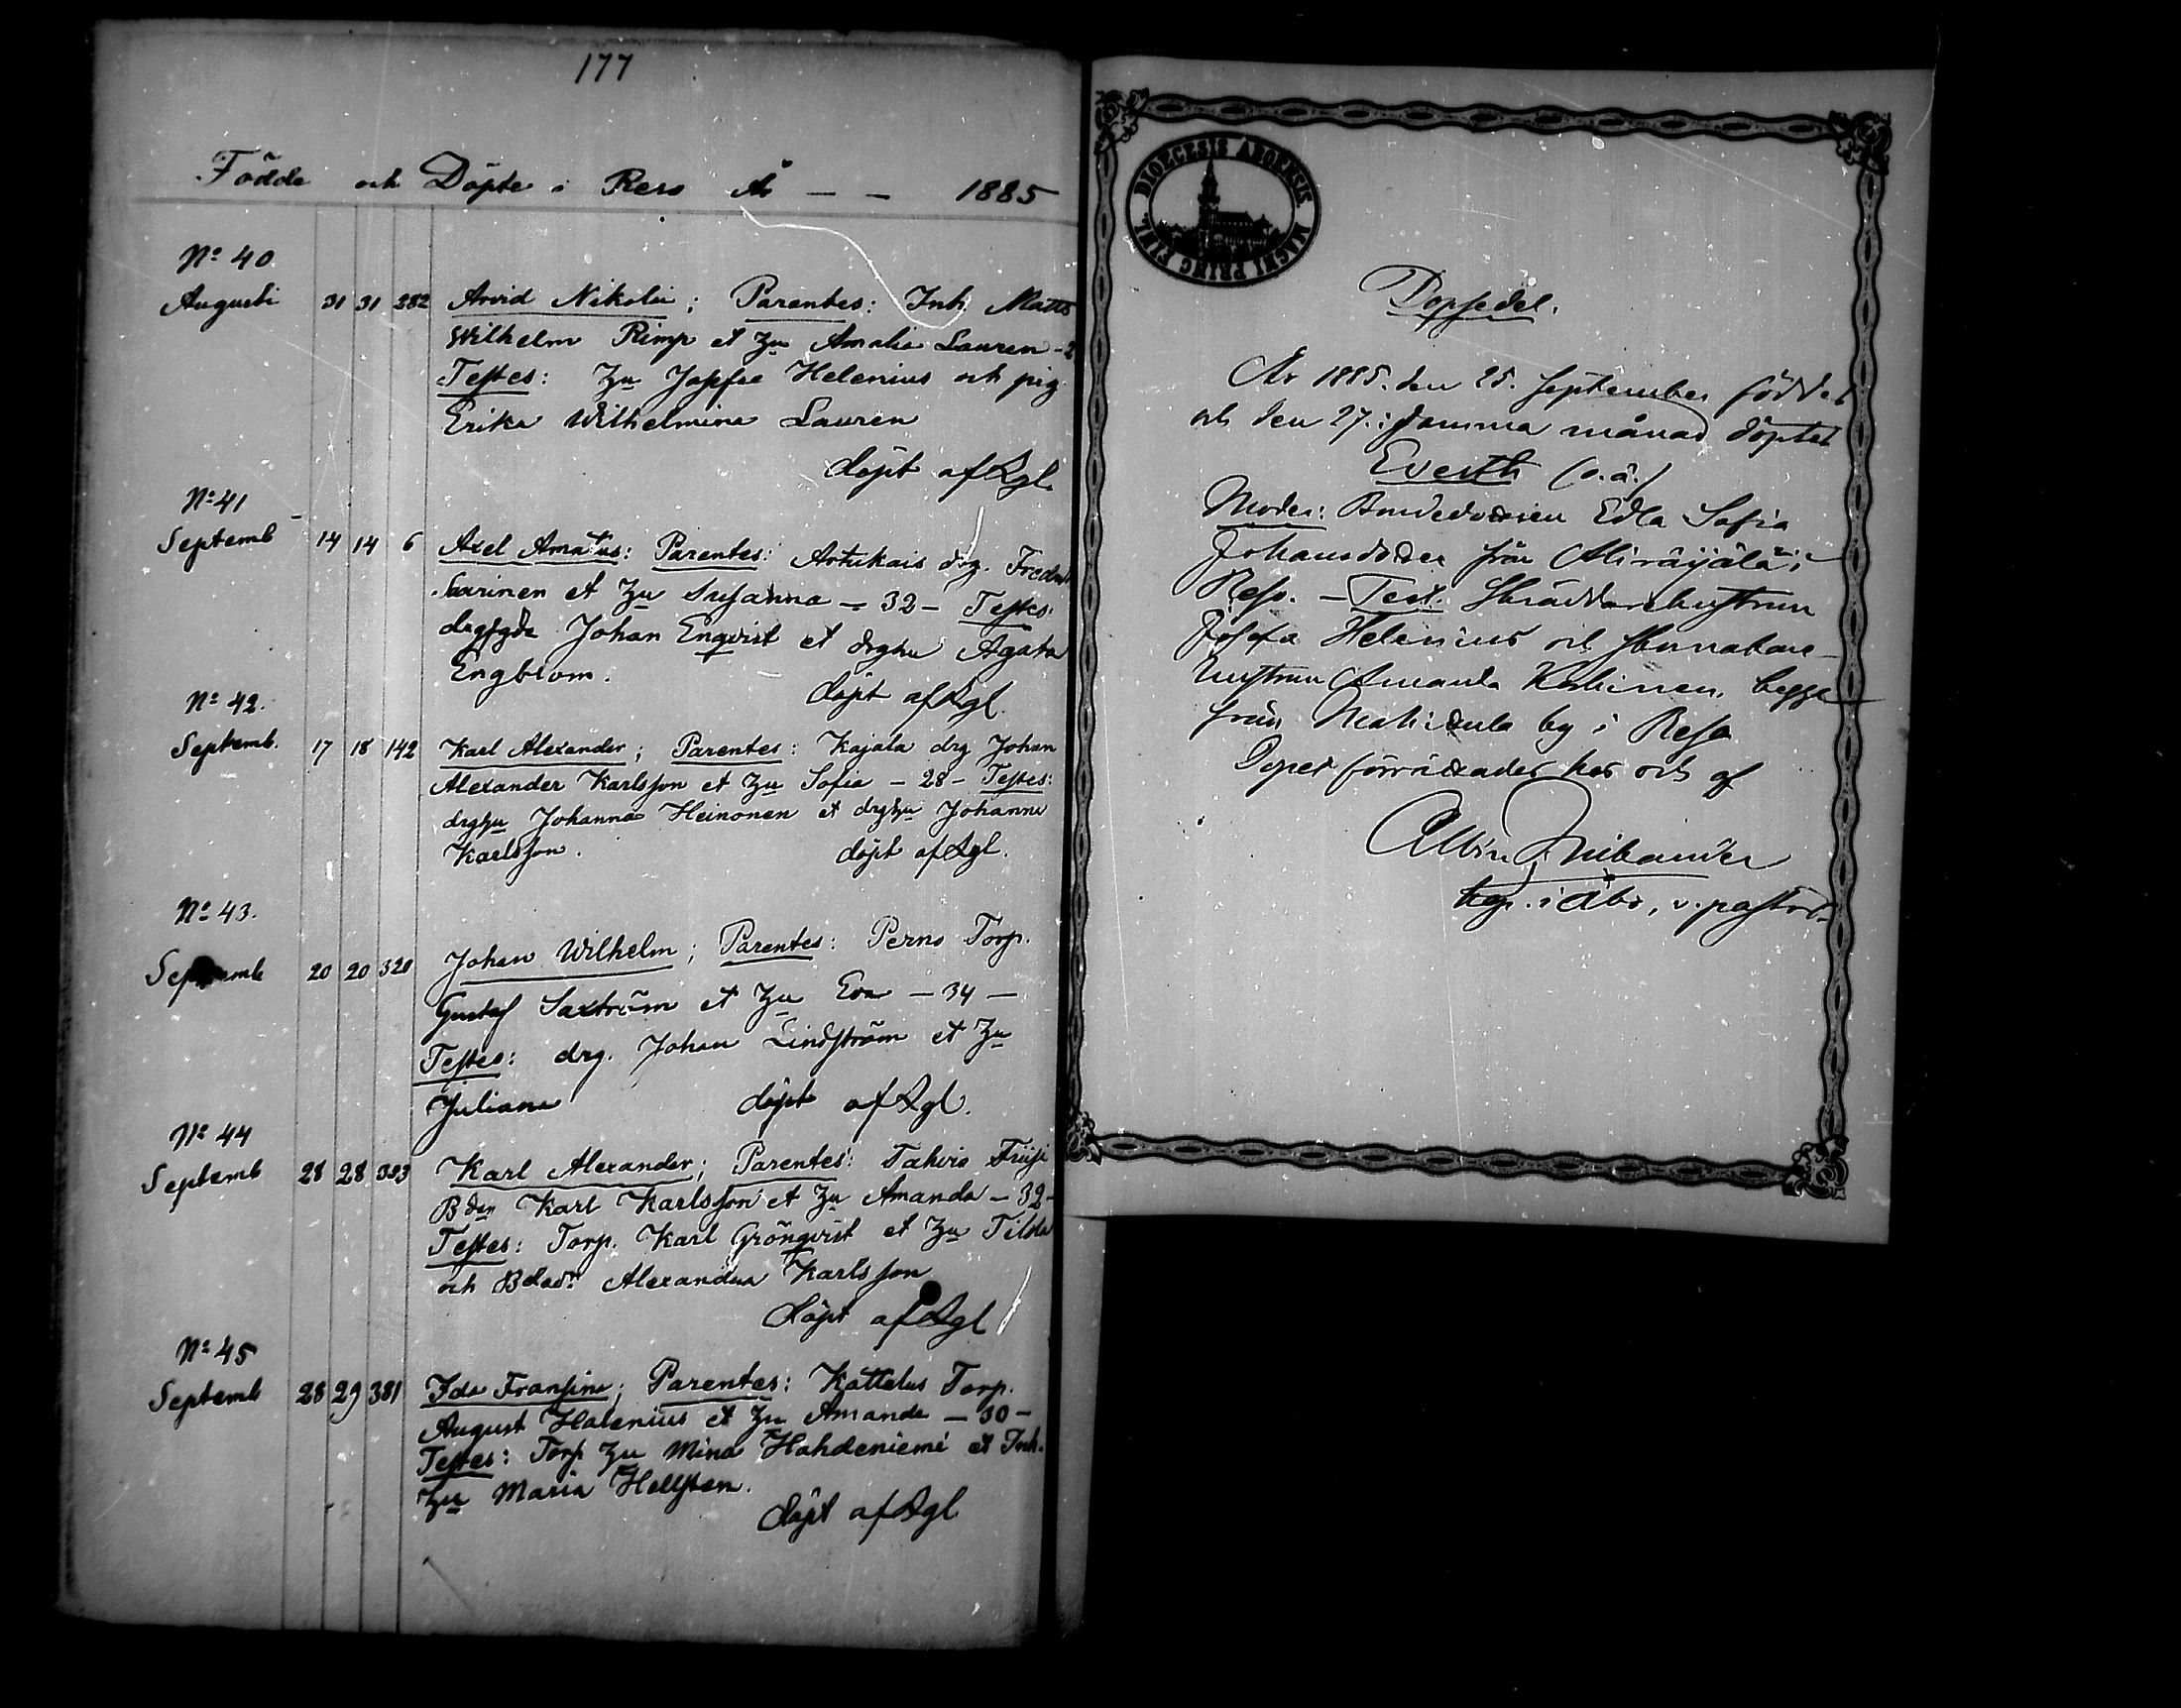 177
Födde och Döpte i Reso År — — 1885
No 40
Augusti 31 31 282 Arvid Nikolai; Parentes: Inh. Matts
Wilhelm Rimp et Hu Amalia Lauren -2
Testes: Hu Josefse Helenius och pig.
Erika Wilhelmina Lauren
döpt af Lgl.
No 41
Septemb 14 14 6 Axel Amatus: Parentes: Artukais drg. Fredrik
Saarinen et Hu Susanna — 32 — Testes:
drg Johan Enqvist et drghu Agata
Engblom.
döpt af Lgl.
No 42.
Septemb. 17 18 142 Karl Alexander; Parentes: Kajala drg Johan
Alexander Karlsson et Hu Sofia — 28 — Testes:
drghu Johanna Heinonen et drghu Johanna
Karlsson.
döpt af Lgl.
No 43.
Septemb 20 20 320 Johan Wilhelm; Parentes: Perno Torp.
Gustaf Saxtröm et Hu Eva — 34 —
Testes: drg. Johan Lindström et Hu
Juliana döpt af Lgl.
No 44
Septemb 28 28 323 Karl Alexander; Parentes: Tahvio
Bden Karl Karlsson et Hu Amanda — 32 -
Testes: Torp. Karl Grönqvist et Hu Tilda
och Bdedr Alexandra Karlsson
döpt af Lgl
No 45
Septemb 28 29 381 Ida Fransina; Parentes: Kattelus Torp.
August Halenius et Hu Amanda — 30 —
Testes: Torp Hu Mina Hahdeniemi et Inh.
Hu Maria Hellsten.
döpt af Lgl
DIOECESIS ABOENSIS MAGNI PRINC FINL.
Dopsedel.
År 1885. den 25. September föddes
och den 27. i samma månad döptes
Everth (o.ä.)
Moder: Bondedottren Edla Sofia
Johansdotter från Aliräijälä i
Reso. — Test. Skräddarehustrun
Josefa Helenius och
hustrun Amanda begge
från by i Reso
Dopet förrättades här och af
Albin
kap. i Åbo, v. pastor.